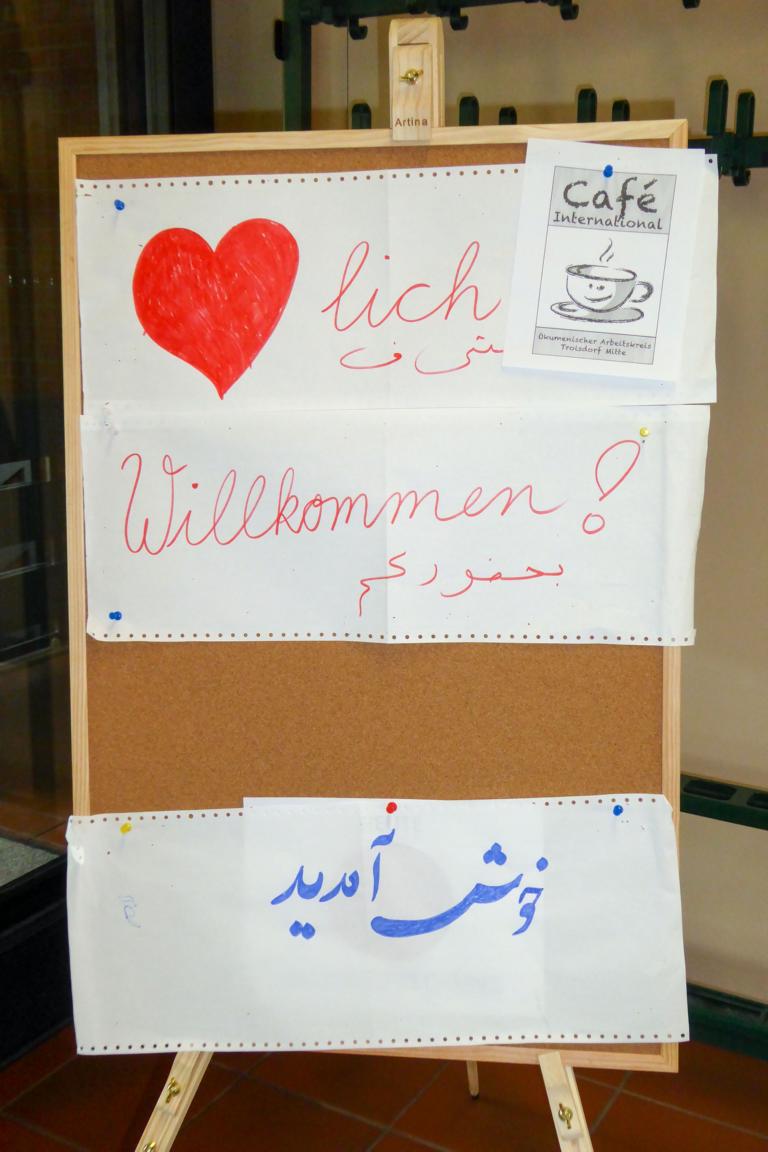 Artina
Café
International
Ökumenischer Arbeitskreis
Troisdorf Mitte
lich
Willkommen!
بحضوركم
خوش آمدید